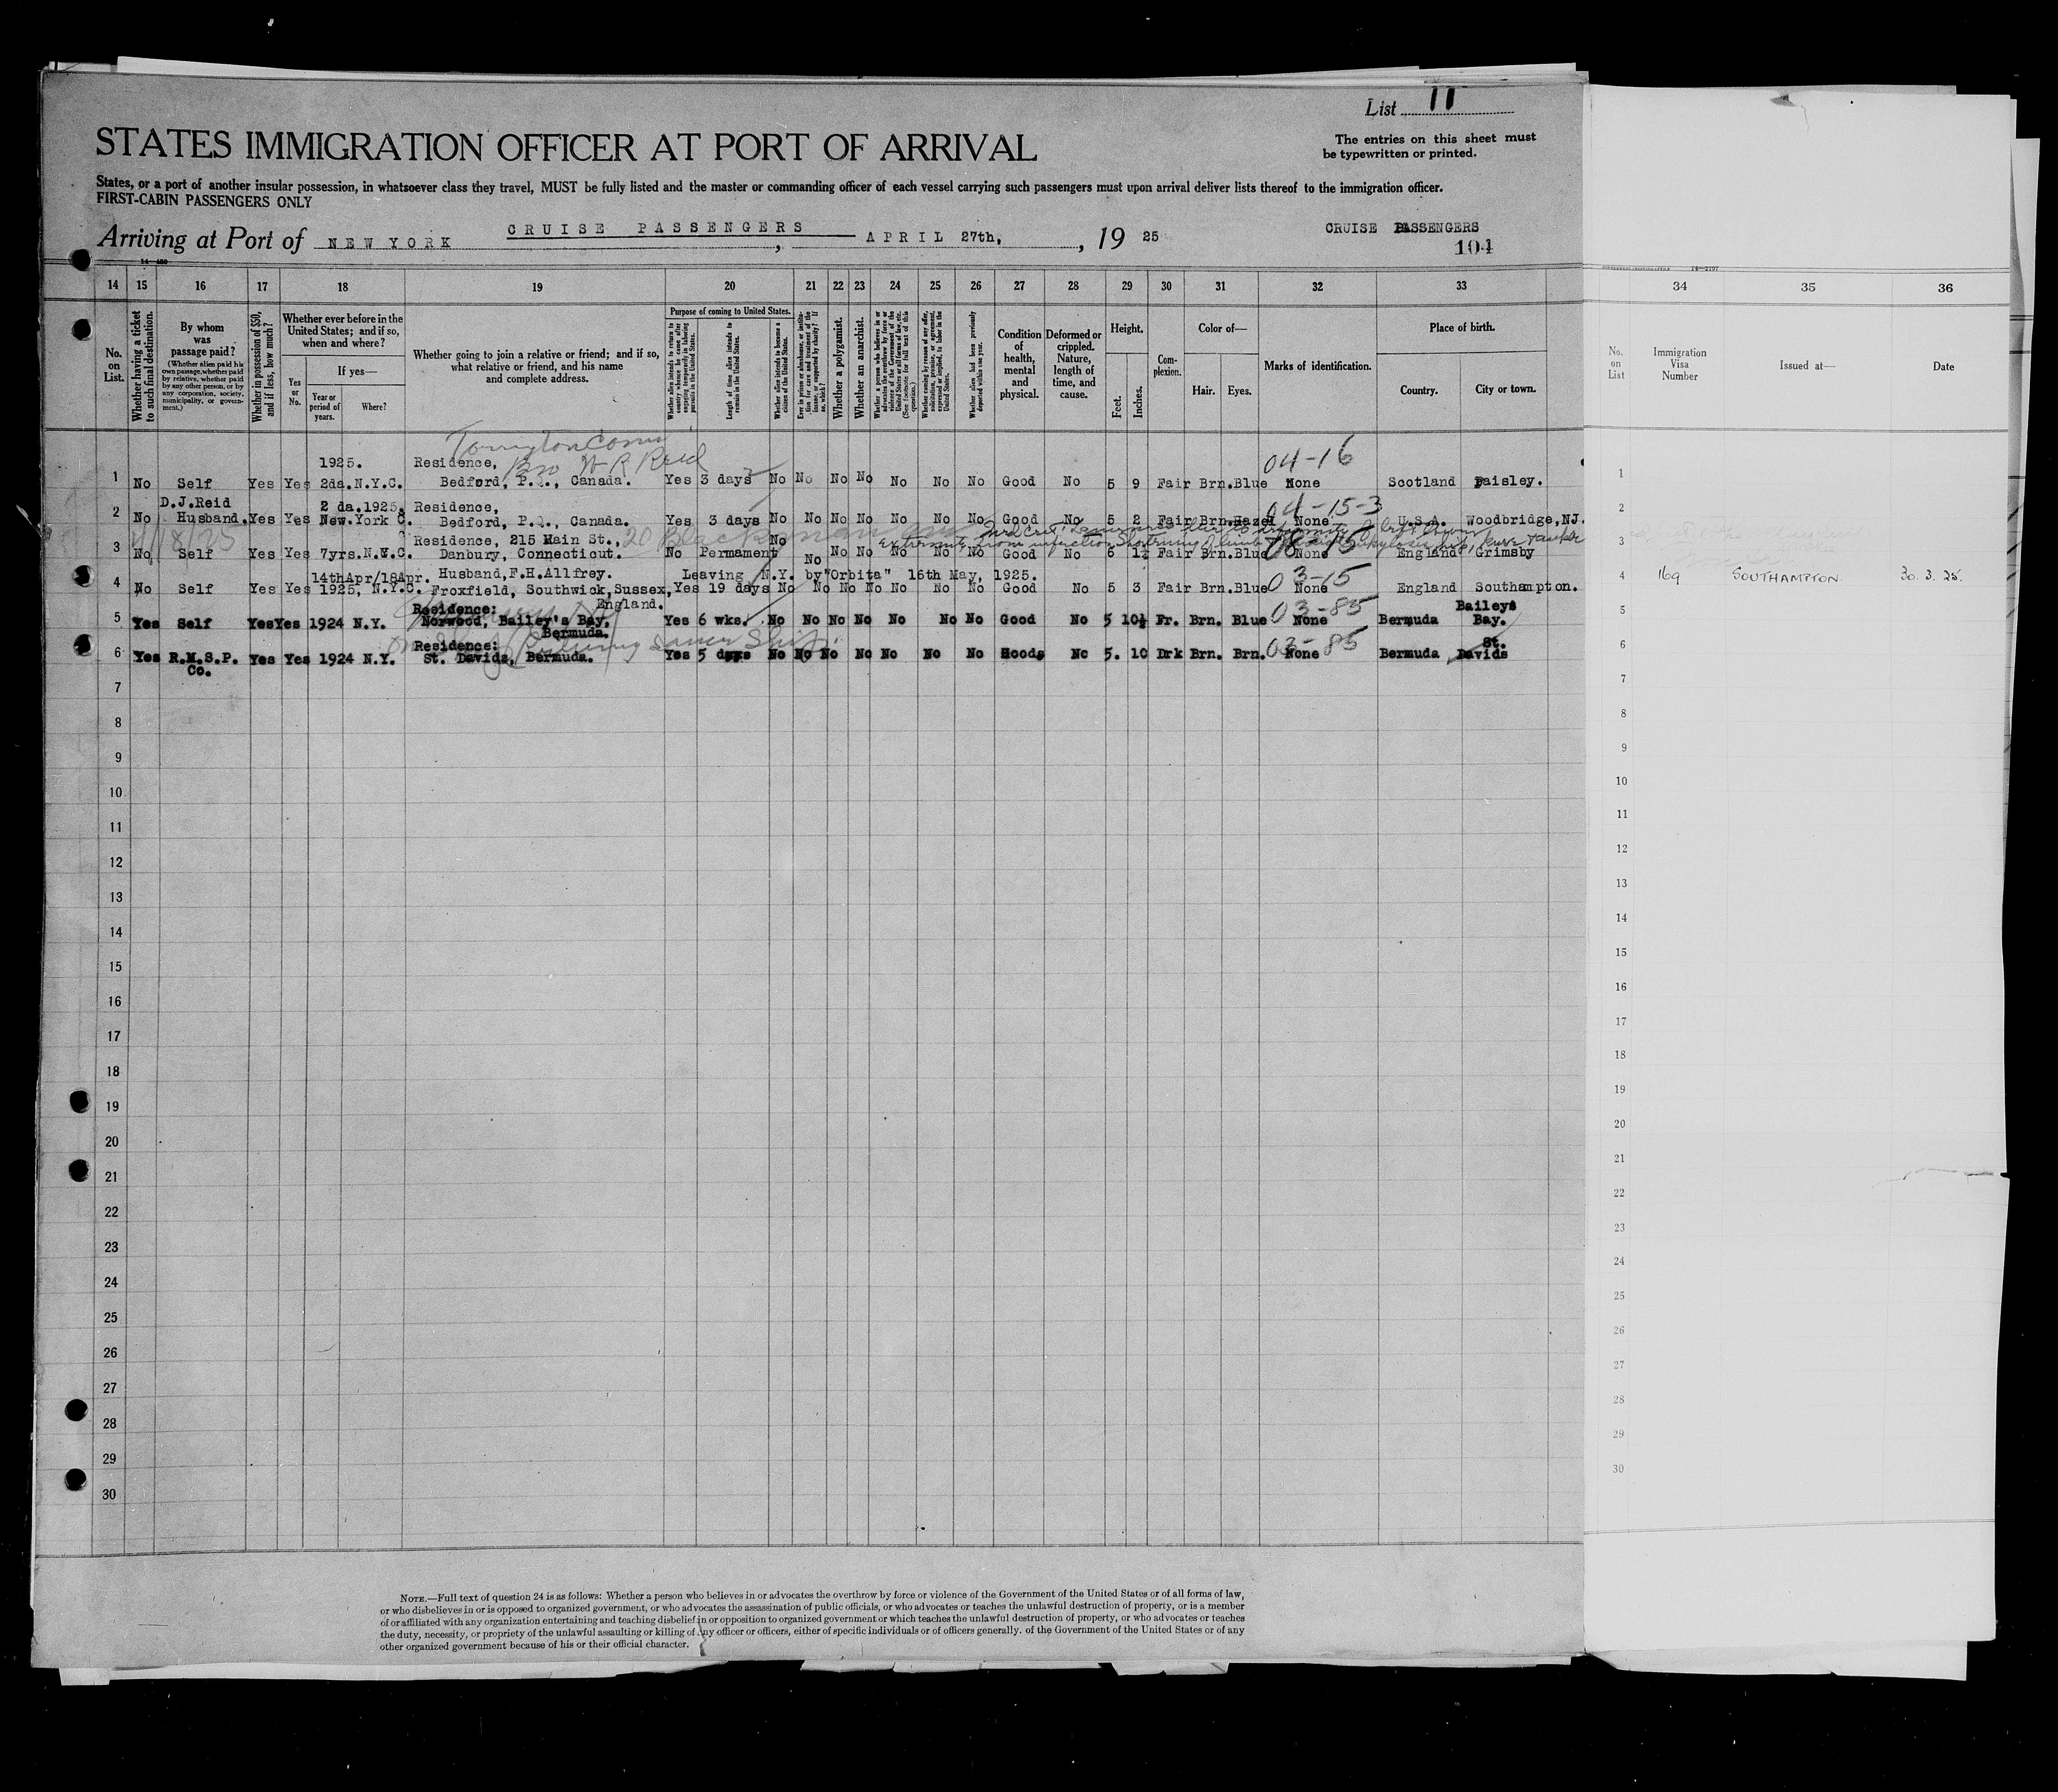 List 11
The entries on this sheet must
be typewritten or printed.
STATES IMMIGRATION OFFICER AT PORT OF ARRIVAL
States, or a port of another insular possession, in whatsoever class they travel, MUST be fully listed and the master or commanding officer of each vessel carrying such passengers must upon arrival deliver lists thereof to the immigration officer.
FIRST-CABIN PASSENGERS ONLY
CRUISE PASSENGERS
Arriving at Port of NEW YORK, APRIL 27th, , 19 25
CRUISE PASSENGERS
104
14 15 16 17 18 19 20 21 22 23 24 25 26 27 28 29 30 31 32 33 34 35 36
No. on List.
Whether having a ticket to such final destination.
By whom was passage paid?
(Whether alien paid his own passage, whether paid by relative, whether paid by any other person, or by any corporation, society, municipality, or government.)
Whether in possession of $50, and if less, how much?
Whether ever before in the United States; and if so, when and where?
Yes or No.
If yes—
Year or period of years.
Where?
Whether going to join a relative or friend; and if so, what relative or friend, and his name and complete address.
Purpose of coming to United States.
Length of time alien intends to remain in the United States.
Whether alien intends to become a citizen of the United States.
Whether a polygamist.
Whether an anarchist.
Condition of health, mental and physical.
Deformed or crippled. Nature, length of time, and cause.
Height.
Feet. Inches.
Complexion.
Color of—
Hair. Eyes.
Marks of identification.
Place of birth.
Country. City or town.
No. on List
Immigration Visa Number
Issued at—
Date
Bro W R Reid
04-16
1925. Residence,
1 No Self Yes Yes 2da.N.Y.C. Bedford, P.Q., Canada. Yes 3 days No No No No No No No Good No 5 9 Fair Brn.Blue None Scotland Paisley.
D.J.Reid 2 da.1925. Residence, 04-15-3
2 No Husband. Yes Yes New.York C. Bedford, P.Q., Canada. Yes 3 days No No No No No No No Good No 5 2 Fair Brn.Hazel None U.S.A. Woodbridge,NJ.
Residence, 215 Main St., No
3 No Self Yes Yes 7yrs.N.Y.C. Danbury, Connecticut. No Permament No No No No No No Good No 5 1½ Fair Brn.Blue None England Grimsby
14thApr/18Apr. Husband,F.H.Allfrey. Leaving N.Y. by"Orbita" 16th May, 1925. 03-15
4 No Self Yes Yes 1925, N.Y.C. Froxfield, Southwick,Sussex, Yes 19 days No No No No No No No Good No 5 3 Fair Brn.Blue None England Southampton. 169 SOUTHAMPTON 30.3.25.
England.
Residence: 03-85 Baileys
5 Yes Self Yes Yes 1924 N.Y. Norwood, Bailey's Bay, Yes 6 wks. No No No No No No No Good No 5 10½ Fr. Brn. Blue None Bermuda Bay.
Bermuda.
Residence: 03-85 St.
6 Yes R.M.S.P. Yes Yes 1924 N.Y. St. Davids, Bermuda. Yes 5 days No No No No No No No Hoods No 5. 10 Drk Brn. Brn. None Bermuda Davids
Co.
7
8
9
10
11
12
13
14
15
16
17
18
19
20
21
22
23
24
25
26
27
28
29
30
NOTE.—Full text of question 24 is as follows: Whether a person who believes in or advocates the overthrow by force or violence of the Government of the United States or of all forms of law,
or who disbelieves in or is opposed to organized government, or who advocates the assassination of public officials, or who advocates or teaches the unlawful destruction of property, or is a member
of or affiliated with any organization entertaining and teaching disbelief in or opposition to organized government or which teaches the unlawful destruction of property, or who advocates or teaches
the duty, necessity, or propriety of the unlawful assaulting or killing of any officer or officers, either of specific individuals or of officers generally. of the Government of the United States or of any
other organized government because of his or their official character.